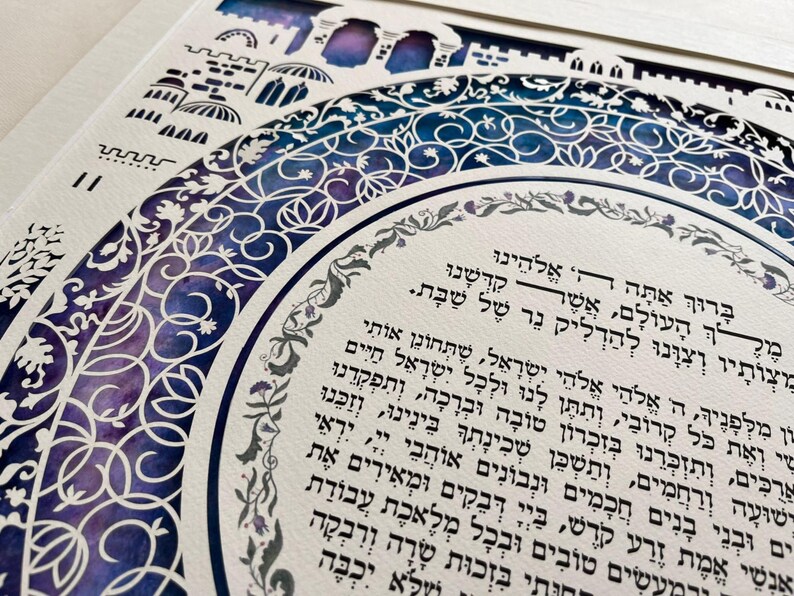 בָּרוּךְ אַתָּה ה' אֱלֹהֵינוּ
מֶלֶךְ הָעוֹלָם, אֲשֶׁר קִדְּשָׁנוּ
בְּמִצְוֹתָיו וְצִוָּנוּ לְהַדְלִיק נֵר שֶׁל שַׁבָּת.
מִלְּפָנֶיךָ, ה' אֱלֹהַי אֱלֹהֵי יִשְׂרָאֵל, שֶׁתְּחוֹנֵן אוֹתִי
וְאֶת כֹּל קְרוֹבַי, וְתִתֵּן לָנוּ וּלְכָל יִשְׂרָאֵל חַיִּים
אֲרֻכִּים, וְתִזְכְּרֵנוּ בְּזִכְרוֹן טוֹבָה וּבְרָכָה, וְתִפְקְדֵנוּ
יְשׁוּעָה וְרַחֲמִים, וְתַשְׁכֵּן שְׁכִינָתְךָ בֵּינֵינוּ, וְזַכֵּנוּ
וּבְנֵי בָנִים חֲכָמִים וּנְבוֹנִים אוֹהֲבֵי יְיָ, יִרְאֵי
אַנְשֵׁי אֱמֶת זֶרַע קֹדֶשׁ, בַּיְיָ דְּבֵקִים וּמְאִירִים אֶת
וּבְמַעֲשִׂים טוֹבִים וּבְכָל מְלֶאכֶת עֲבוֹדַת
בִּזְכוּת שָׂרָה וְרִבְקָה
שֶׁלֹּא יִכְבֶּה